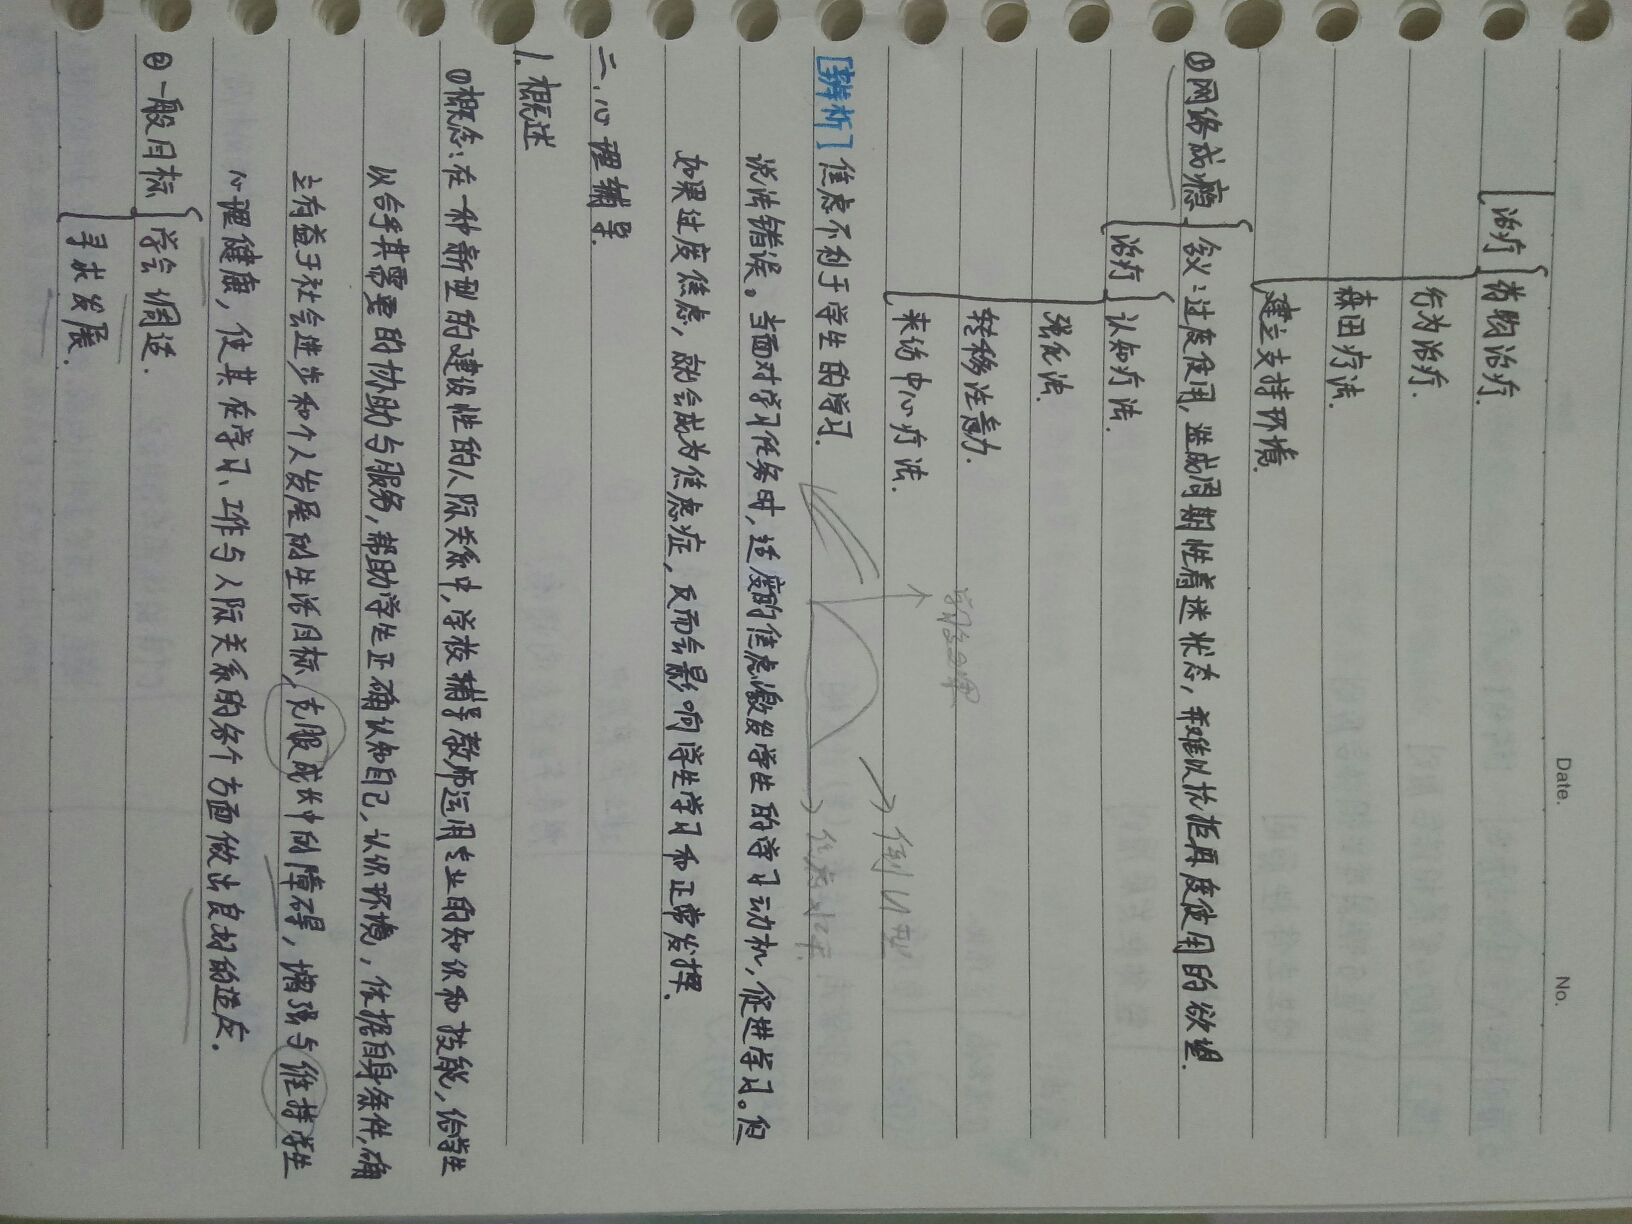 Date.
No.
治疗
药物治疗.
行为治疗.
森田疗法.
建立支持环境.
网络成瘾
含义:过度使用,造成周期性着迷状态,并难以抗拒再度使用的欲望.
治疗
认知疗法.
强化法.
转移注意力.
来访中心疗法.
学习效果
倒U型
[辨析] 焦虑不利于学生的学习.
焦虑水平.
说法错误。当面对学习任务时,适度的焦虑激发学生的学习动机,促进学习。但
如果过度焦虑,就会成为焦虑症,反而会影响学生学习和正常发挥.
二、心理辅导.
1.概述
①概念:在一种新型的建设性的人际关系中,学校辅导教师运用专业的知识和技能,给学生
以合乎其需要的协助与服务,帮助学生正确认知自己,认识环境,依据自身条件,确
立有益于社会进步和个人发展的生活目标,克服成长中的障碍,增强与维持学生
心理健康,使其在学习、工作与人际关系的各个方面做出良好的适应.
②一般目标
学会调适.
寻求发展.